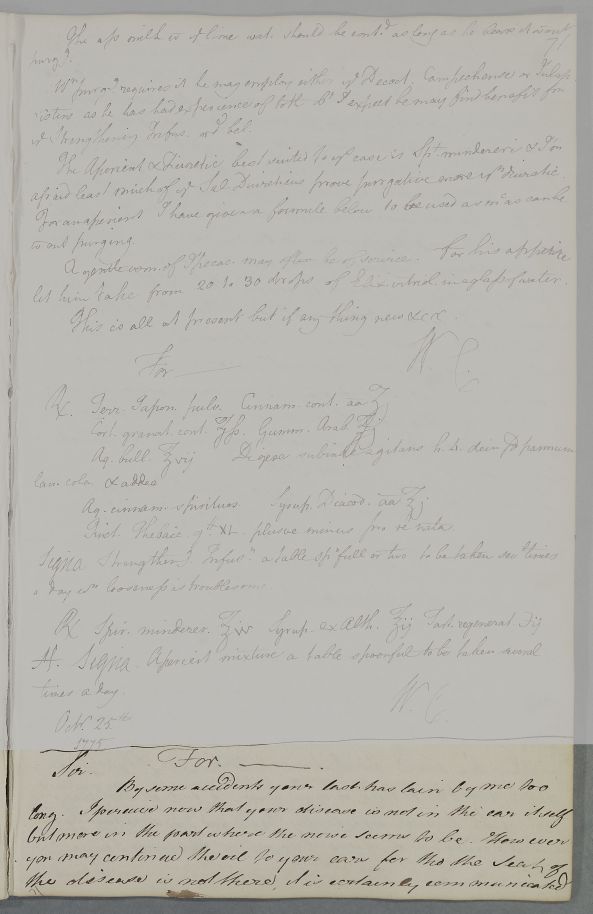 The ass milk & ye lime wat. should be cont.d as long as he bears it without
purg.g
71
Wn purg.g requires it he may employ either ye Decoct. Campechense or Infus.
as he has had experience of both bt I expect he may find benefit from
ye Strengthening Infus. wd bel.
The Aperient & Diuretic best suited to yr case is Spt. mindereri & I'm
afraid least much of ye Sal. Diureticus prove purgative more yn diuretic.
For an aperient I have given a formule below to be used as mh as can be
without purging.
A gentle vom. of Ipecac. may often be of service. For his appetite
let him take from 20 to 30 drops of Elix. vitriol. in a glass of water.
This is all at present but if any thing new &c &c.
W C.
For
℞. Terr. Japon. pulv. Cinnam. cont. aa ℥j
Cort. granat. cont. ℥ſs. Gumm. Arab. ʒij
Aq. bull. ℥vij Digere subinde agitans h. 4. dein pd pannum
lan. cola & adde
Aq. cinnam. spirituos. Syrup. Diacod. aa ℥j
Tinct. Thebaic. gtt XL. plusve minus pro re nata.
Signa Strengtheng. Infusn a table spfull or two to be taken sevl times
a day wn looseness is troublesome.
℞ Spir. minderer. ℥iv Syrup. ex Alth. ℥ij Tart. regenerat. ʒij
M. Signa. Aperient mixture a table spoonful to be taken several
times a day.
W. C.
Oct. 25th
1775
Sir. For.
By some accidents your last has lain by me too
long. I perceive now that your disease is not in the ear itself
but more in the part where the noise seems to be. However
you may continued the oil to your ears for tho the Seat of
the disease is not there, it is certainly communicated